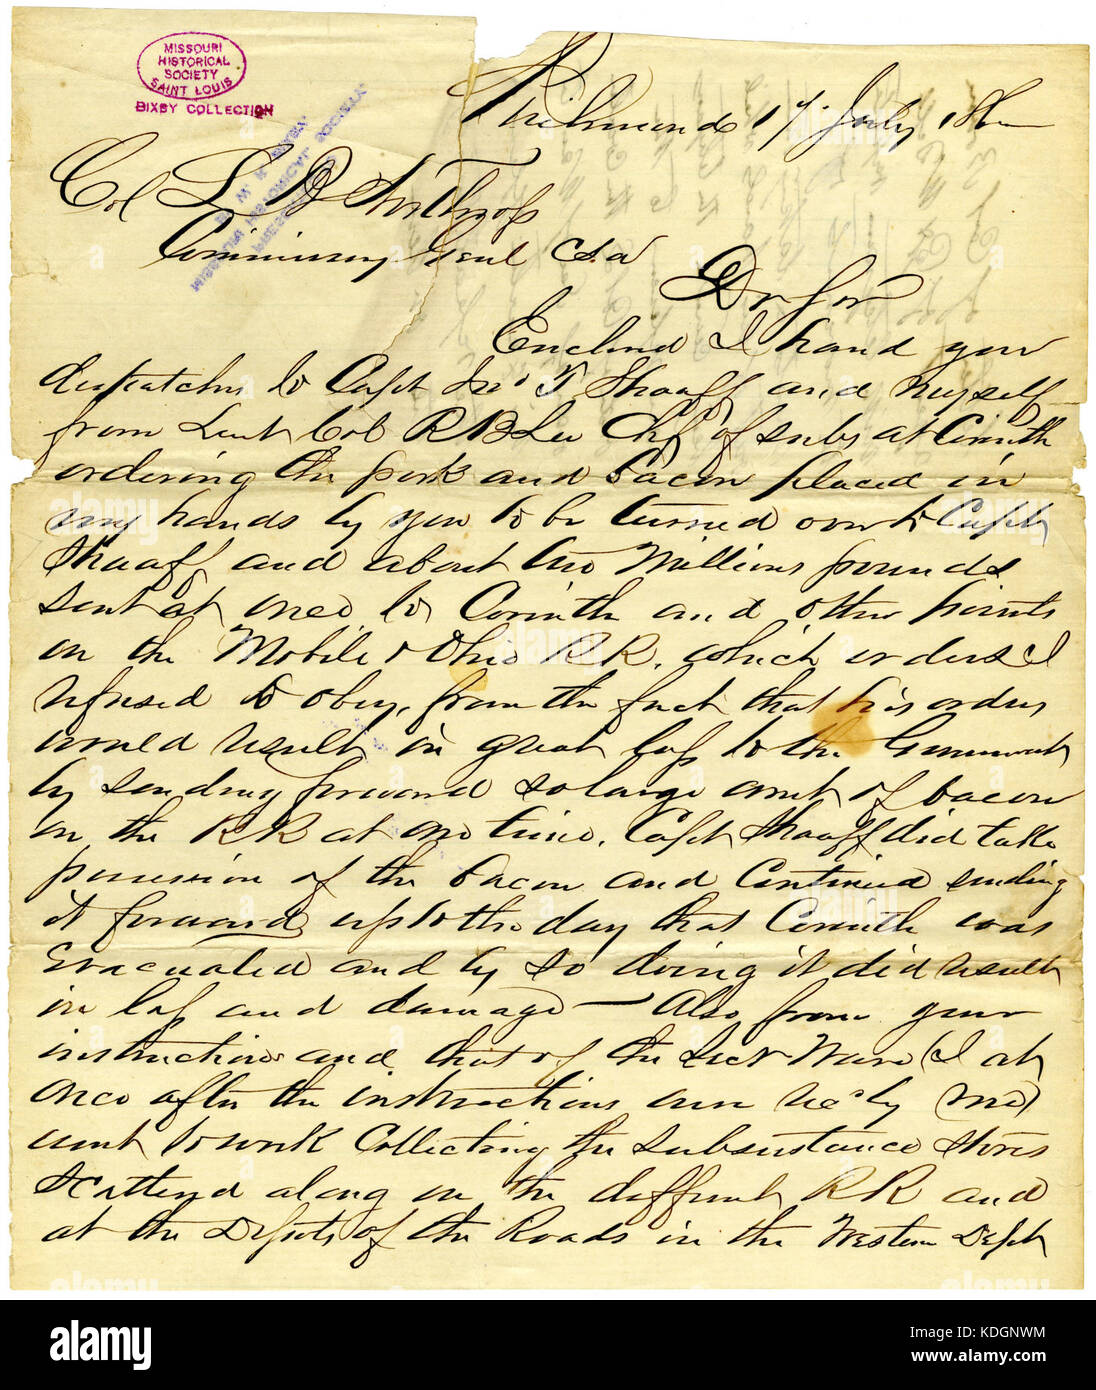 MISSOURI
HISTORICAL
SOCIETY
SAINT LOUIS
BIXBY COLLECTION
Richmond 17 July
Col L B Northrop
Commissary Genl C.S.A
Dr Sir
Enclosed I hand you
dispatches to Capt Jno T Shaaff and myself
from Lieut Col R B Lee Chf of subs at Corinth
ordering the pork and bacon placed in
my hands by you to be turned over to Capt
Shaaff and about two Millions pounds
sent at once to Corinth and other points
on the Mobile & Ohio R R. which orders I
refused to obey, from the fact that his orders
would result in great loss to the Government
by sending forward so large amt of bacon
on the R R at one time. Capt Shaaff did take
possession of the bacon and Continued sending
it forward up to the day that Corinth was
Evacuated and by so doing it did result
in loss and damage — Also from your
instructions and that of the Secr Warr (I at
once after the instructions were rec'd by me)
went to work Collecting the subsistance stores
scattered along on the different R R and
at the Depots of the Roads in the Western Dept
alamy
a
alamy
Image ID: KDGNWM
www.alamy.com